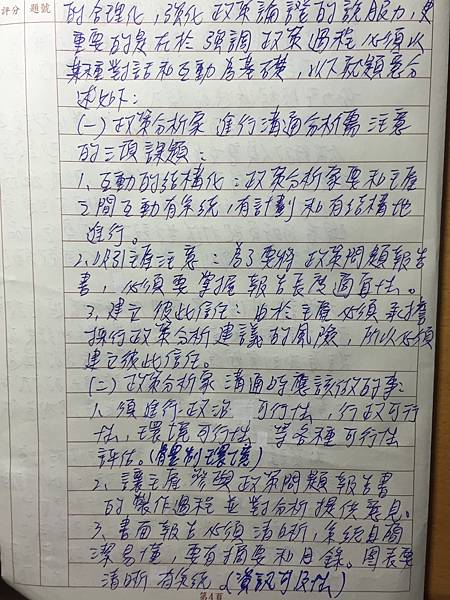 評分 題號
的合理化，強化政策論證的說服力，更
重要的是在於強調政策過程必須以
某種對話和互動為基礎，以下就題意分
述如下：
(一)政策分析家進行溝通分析需注意
的三項課題：
1、互動的結構化：政策分析家要和主雇
之間互動有系統，有計劃和有結構地
進行。
2、吸引主雇注意：為了要將政策問題報告
書，必須要掌握報告長度適宜性。
3、建立彼此信任：由於主雇必須承擔
採行政策分析建議的風險，所以必須
建立彼此信任。
(二)政策分析家溝通時應該做的事：
1、須進行政治可行性，行政可行
性，環境可行性等各種可行性
評估。
2、讓主雇參與政策問題報告書
的製作過程並對分析提供意見。
3、書面報告必須清晰，系統且簡
潔易懂，要有摘要和目錄。圖表要
清晰有系統。(資訊可及性)
第4頁